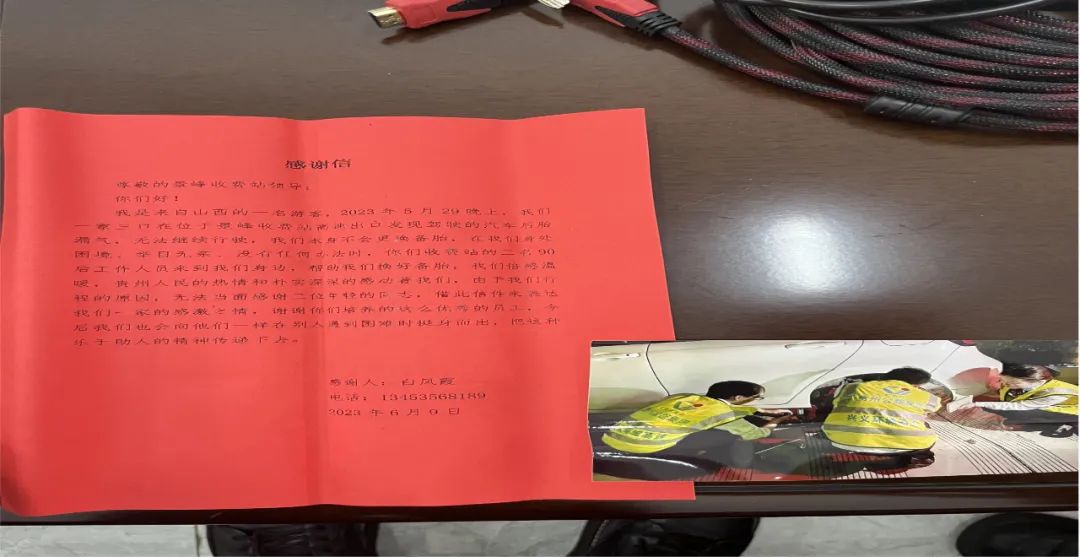 感谢信
尊敬的景峰收费站领导：
你们好！
我是来自山西的一名游客，2023年5月29晚上，我们
一家三口在位于景峰收费站高速出口发现驾驶的汽车后胎
漏气，无法继续行驶，我们本身不会更换备胎，在我们身处
困境、举目无亲、没有任何办法时，你们收费站的二名90
后工作人员来到我们身边，帮助我们换好备胎，我们倍感温
暖，贵州人民的热情和朴实深深的感动着我们，由于我们行
程的原因，无法当面感谢二位年轻的同志，借此信件来表达
我们一家的感激之情，谢谢你们培养的这么优秀的员工，今
后我们也会向他们一样在别人遇到困难时挺身而出，把这种
乐于助人的精神传递下去。
感谢人：白凤霞
电话：13453568189
2023年6月9日